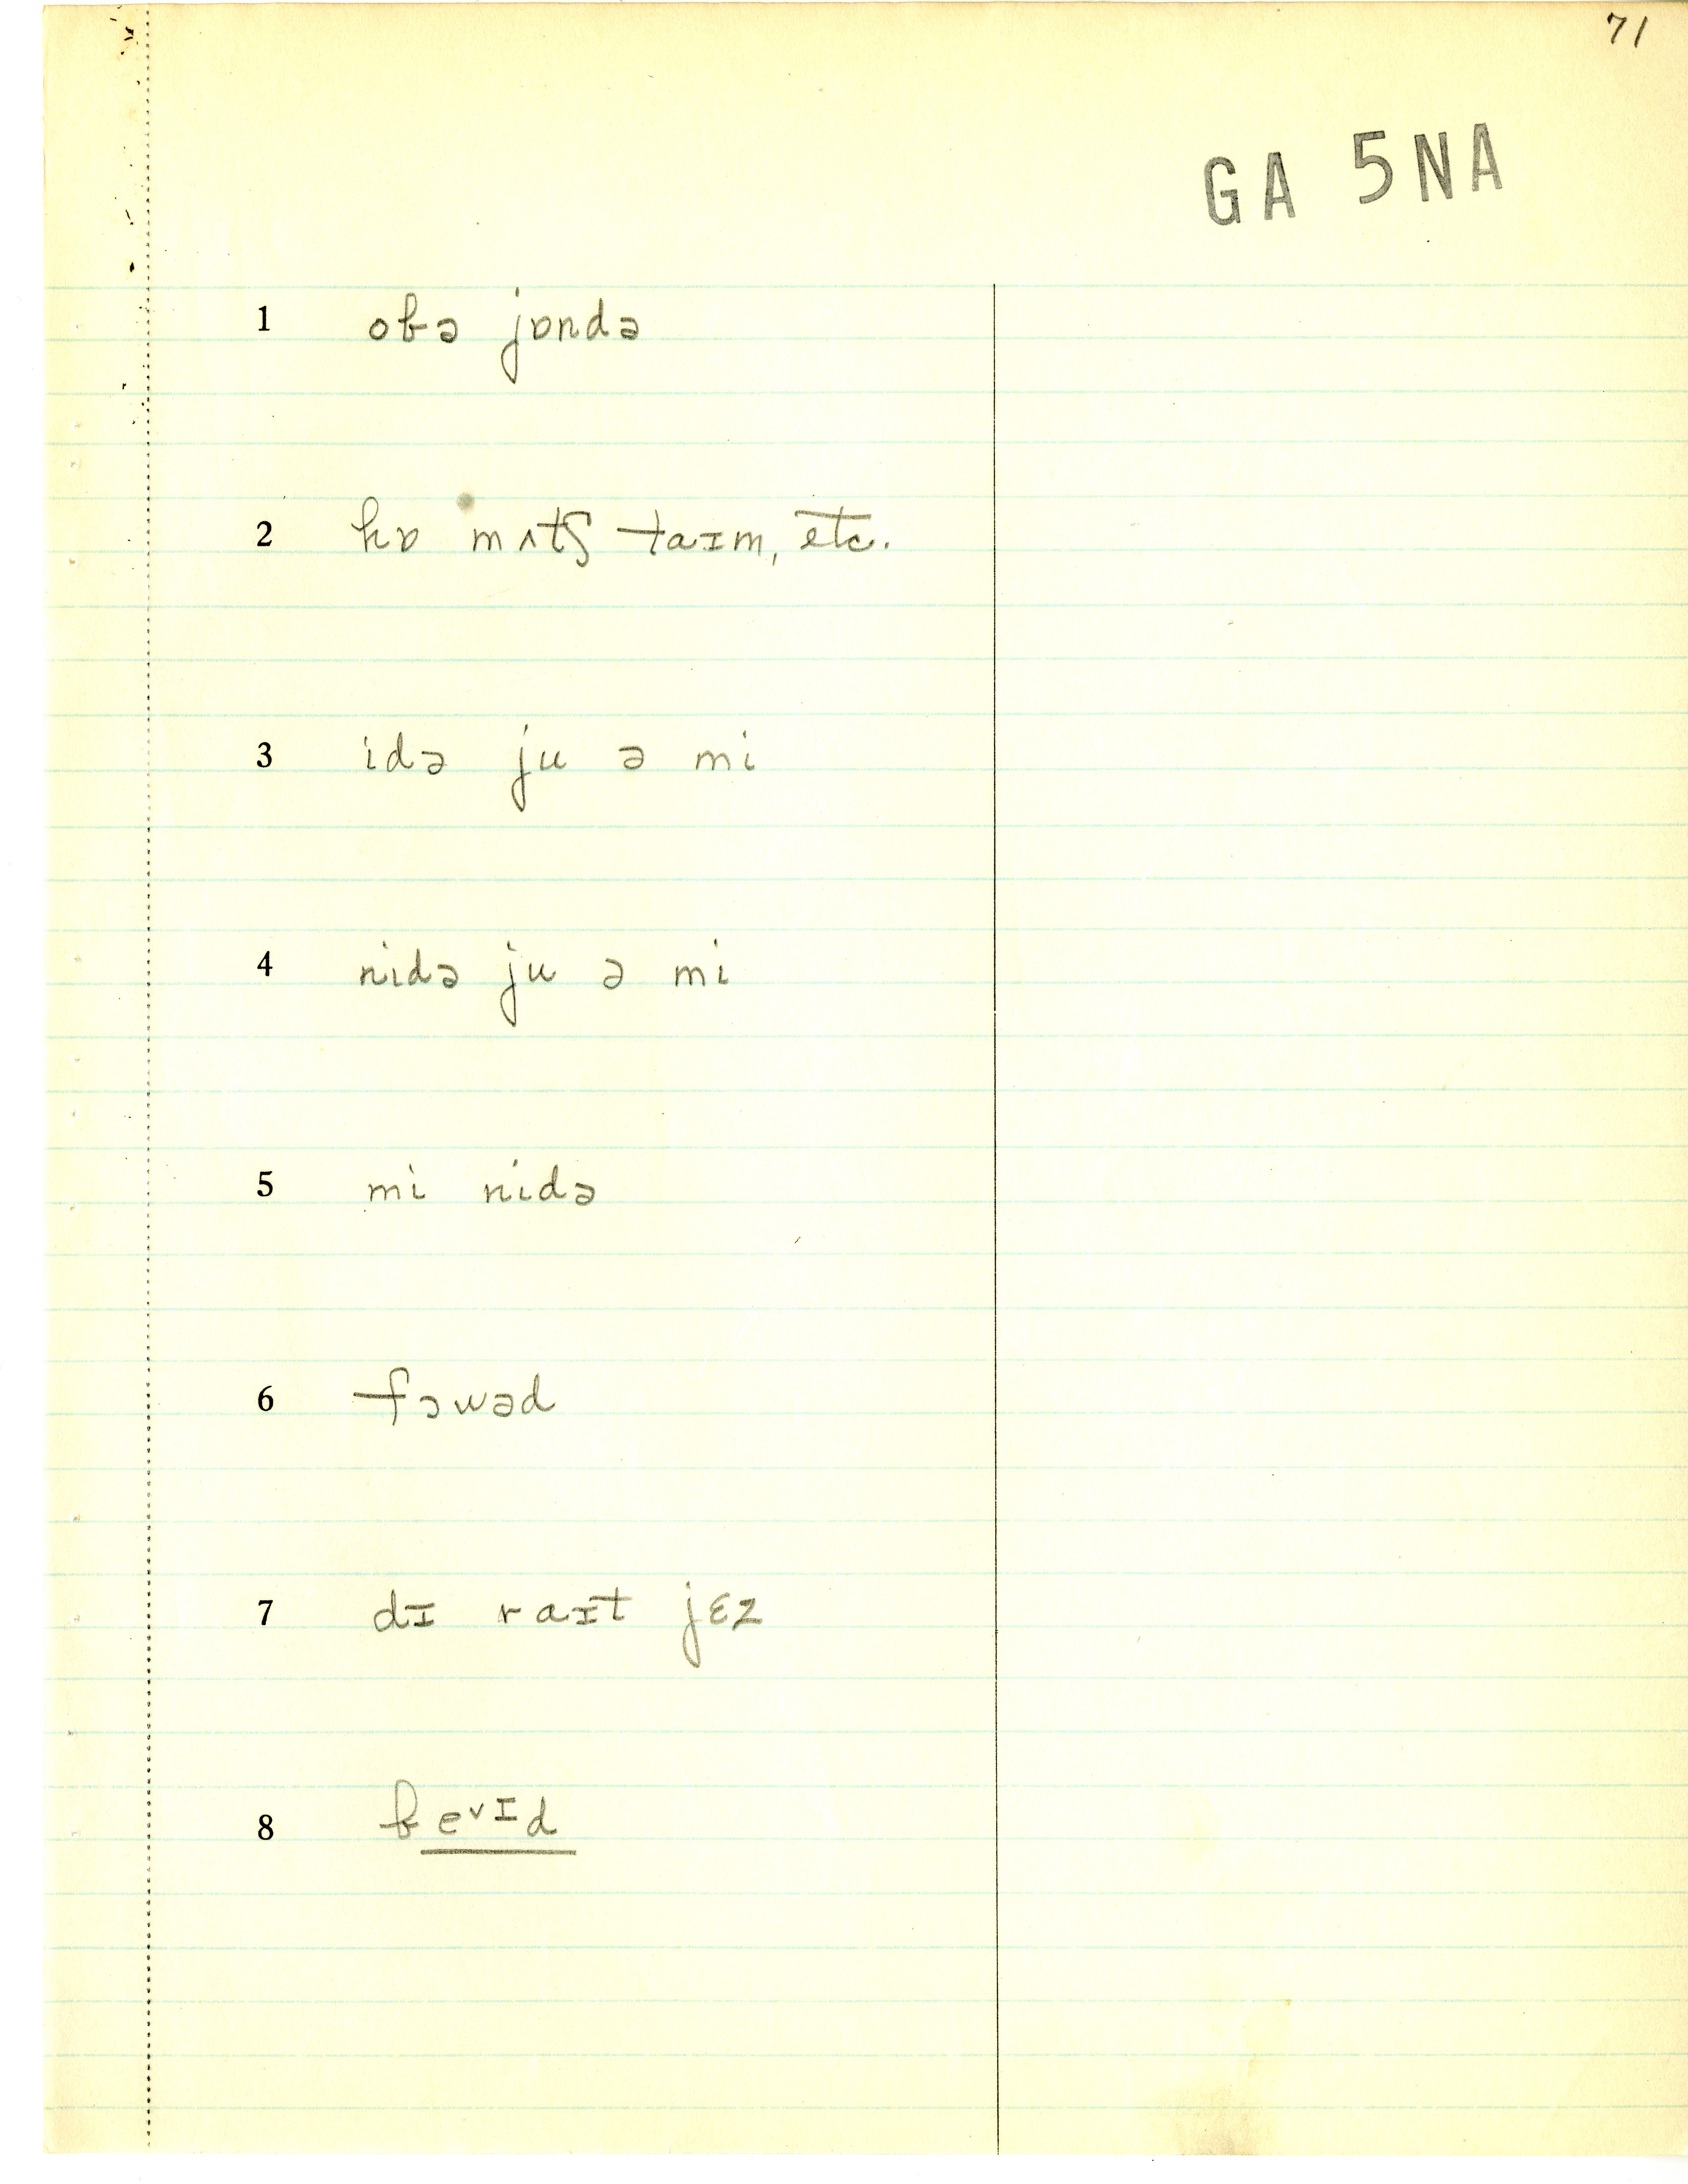 71
GA 5NA
1 obə jɒndə
2 hɒ mʌtʃ taɪm, etc.
3 idə ju ə mi
4 nidə ju ə mi
5 mi nidə
6 fɔwəd
7 dɪ raɪt jɛz
8 beᵛɪd